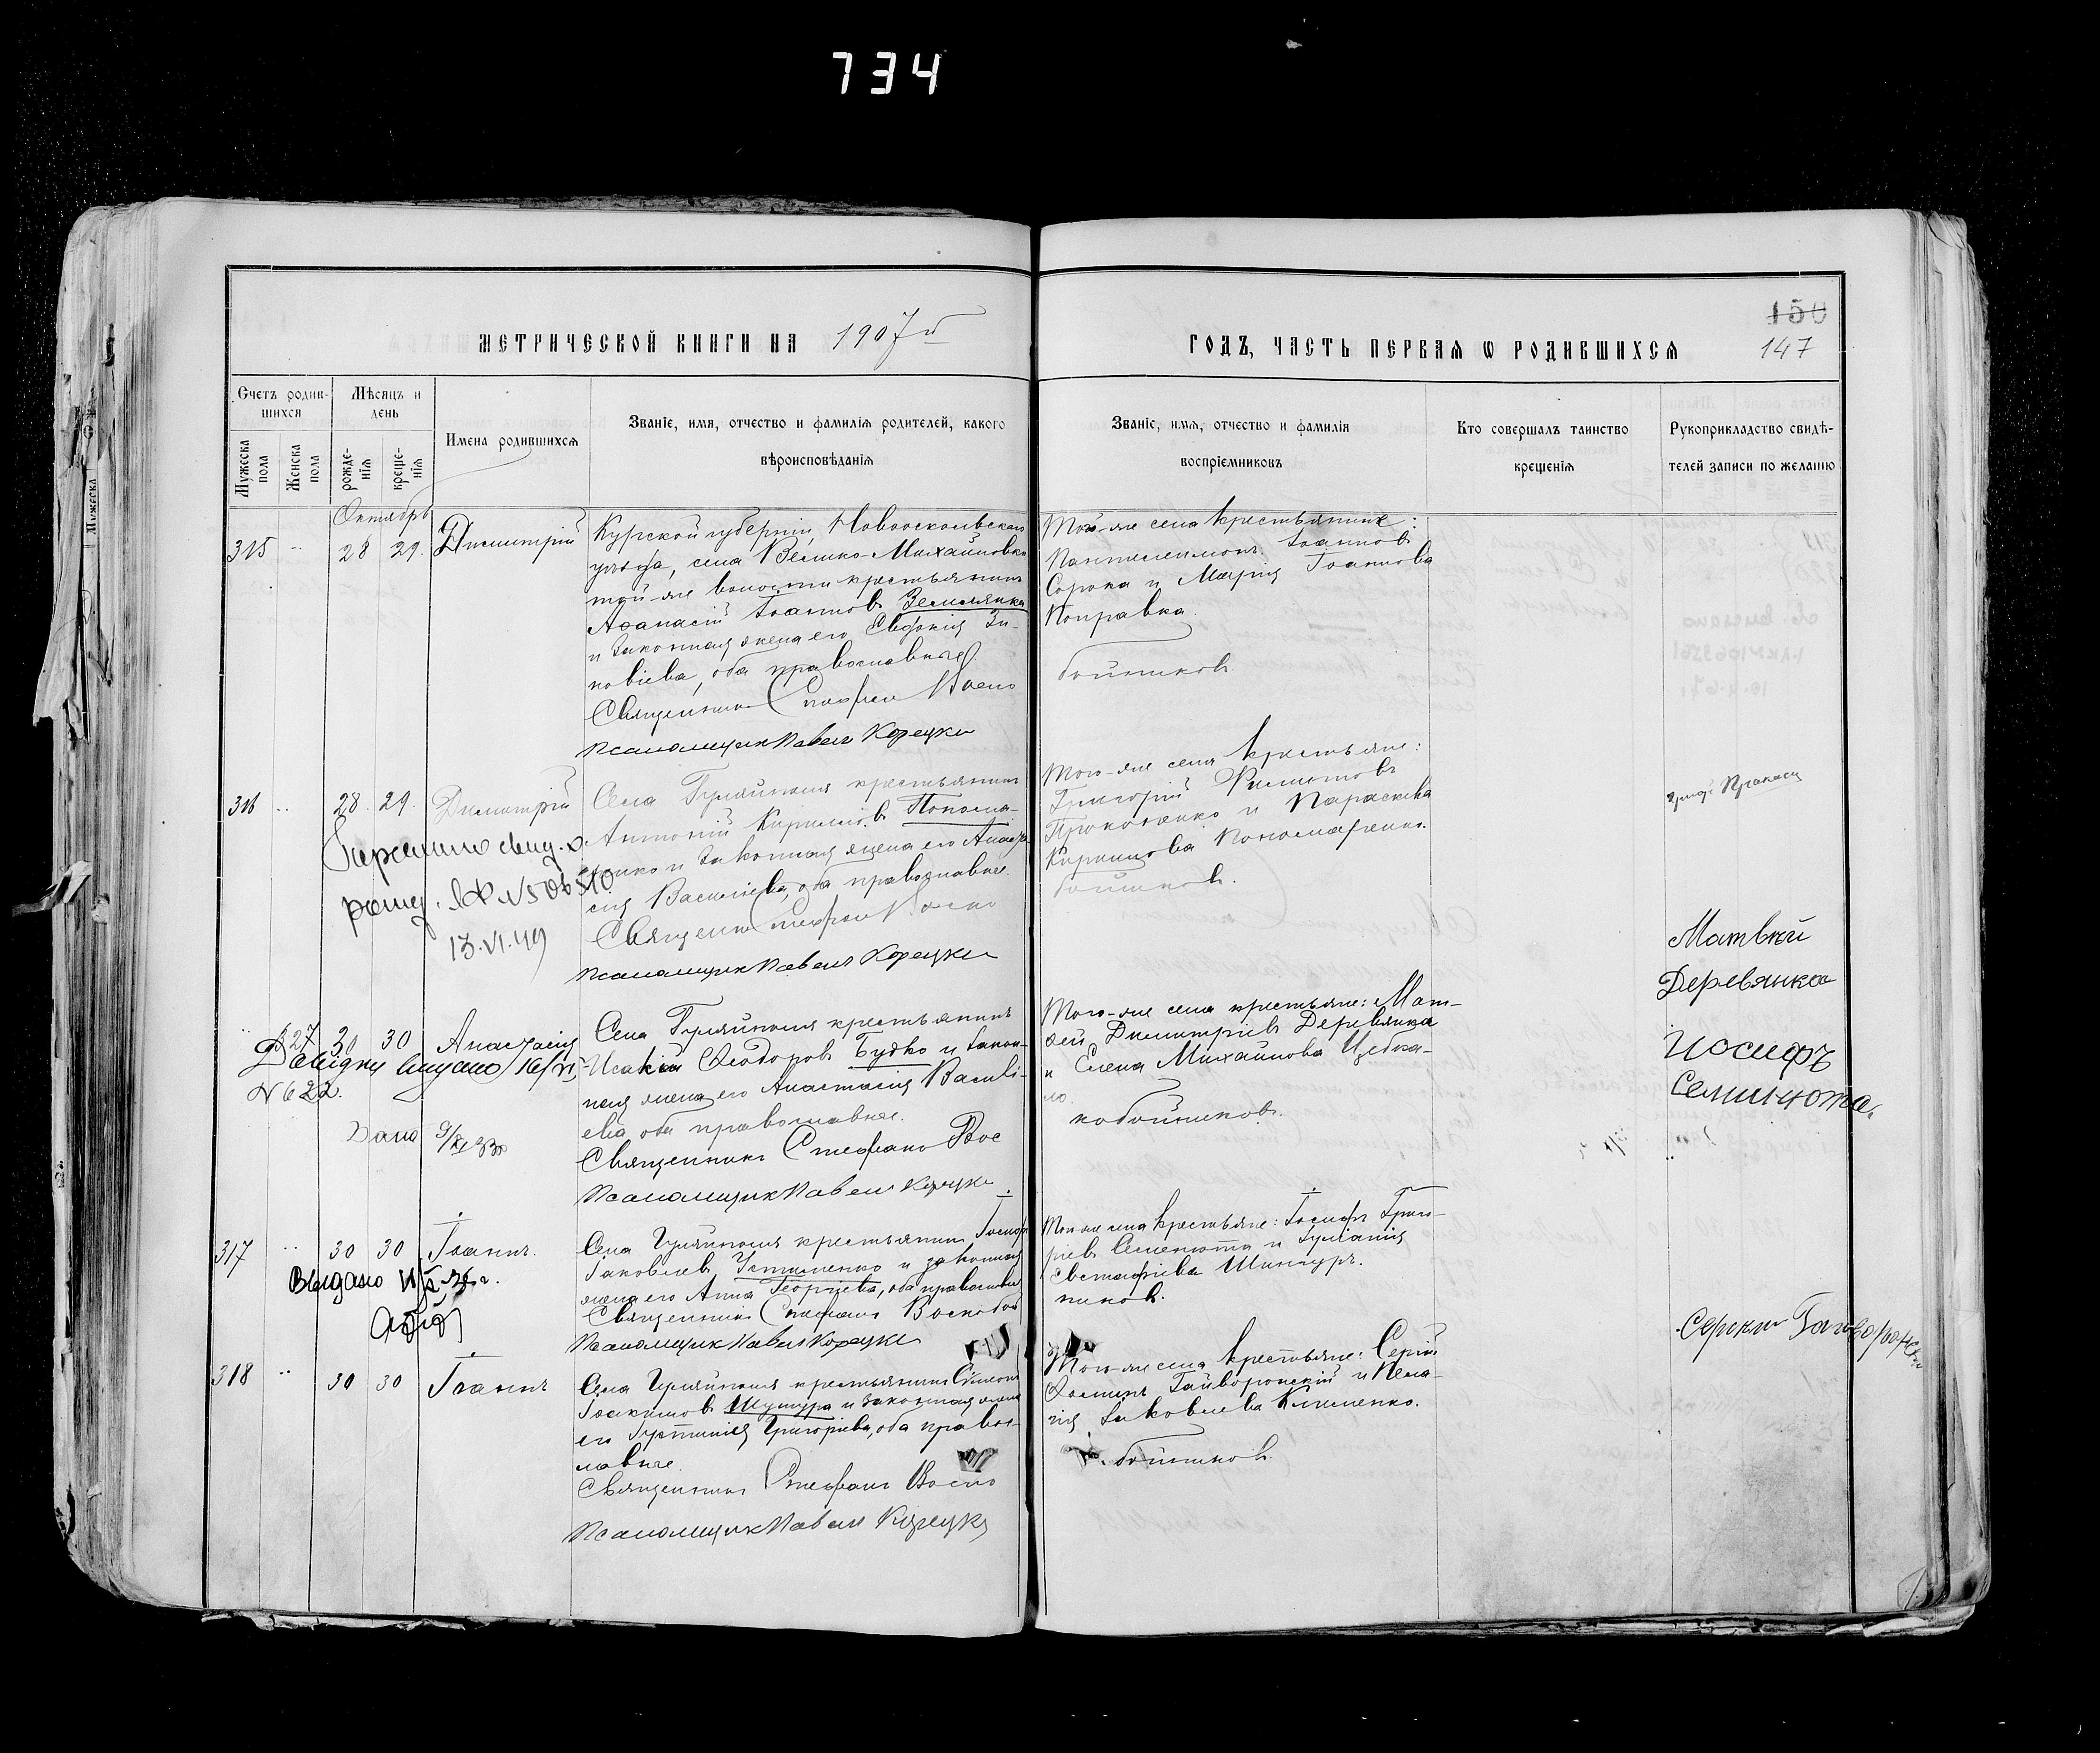 734
150
147
МЕТРИЧЕСКОЙ КНИГИ НА 1907й
ГОДЪ, ЧАСТЬ ПЕРВАЯ Ѡ РОДИВШИХСЯ
Счетъ родив-
шихся
Мѣсяцъ и
день
Мужеска
пола
Женска
пола
рожде-
нія
креще-
нія
Имена родившихся
Званіе, имя, отчество и фамилія родителей, какого
вѣроисповѣданія
Званіе, имя, отчество и фамилія
воспріемниковъ
Кто совершалъ таинство
крещенія
Рукоприкладство свидѣ-
телей записи по желанію
Октябрь
315 28 29. Димитрій
Курской губерніи, Новооскольскаго
уѣзда, села Велико-Михайловки
той-же волости крестьянинъ
Аѳанасій Іоанновъ Землянка
и законная жена его Евдокія Зи-
новіева, оба православные
Священникъ Стефанъ Воско
Псаломщикъ Павелъ Корецки
Того-же села крестьяне:
Пантелеимонъ Іоанновъ
Сорока и Марія Іоаннова
Коправка.
бойниковъ.
316 28. 29. Димитрій
Села Гуляйполя крестьянинъ
Антоній Кирилловъ Понома-
ренко и законная жена его Анаста-
сія Васильева, оба православные.
Священникъ Стефанъ Воско
Псаломщикъ Павелъ Корецки
Того-же села крестьяне:
Григорій Филиповъ
Прокопенко и Параскева
Кириллова Пономаренко.
бойниковъ.
13.VI.49
327 30 30 Анастасія
Села Гуляйполя крестьянинъ
Исакій Ѳеодоровъ Будко и закон-
ная жена его Анастасія Василі-
ева оба православные.
Священникъ Стефанъ Вос
Псаломщикъ Павелъ Корецки
Того-же села крестьяне: Мат-
ѳей Димитріевъ Деревянка
и Елена Михайлова Цебка-
ло.
кобойниковъ.
Матвѣй
Деревянка
Довідку видано
N 622.
317 30 30 Іоаннъ.
Села Гуляйполя крестьянинъ Іосифъ
Іаковлевъ Устименко и законная
жена его Анна Георгіева, оба православные
Священникъ Стефанъ Воскобой
Псаломщикъ Павелъ Корецки
Того же села крестьяне: Іосифъ Григо-
ріевъ Семенюта и Іуліанія
Евстафіева Шинкуръ.
никовъ.
Іосифъ
Семинюта.
Видано
318 30 30 Іоаннъ
Села Гуляйполя крестьянинъ Симеонъ
Іоакимовъ Шутура и законная жена
его Іустинія Григоріева, оба право-
лавные.
Священникъ Стефанъ Воско
Псаломщикъ Павелъ Корецки
Того-же села крестьяне: Сергій
Ѳоминъ Гайворонскій и Пела-
гія Іаковлева Клименко.
бойниковъ.